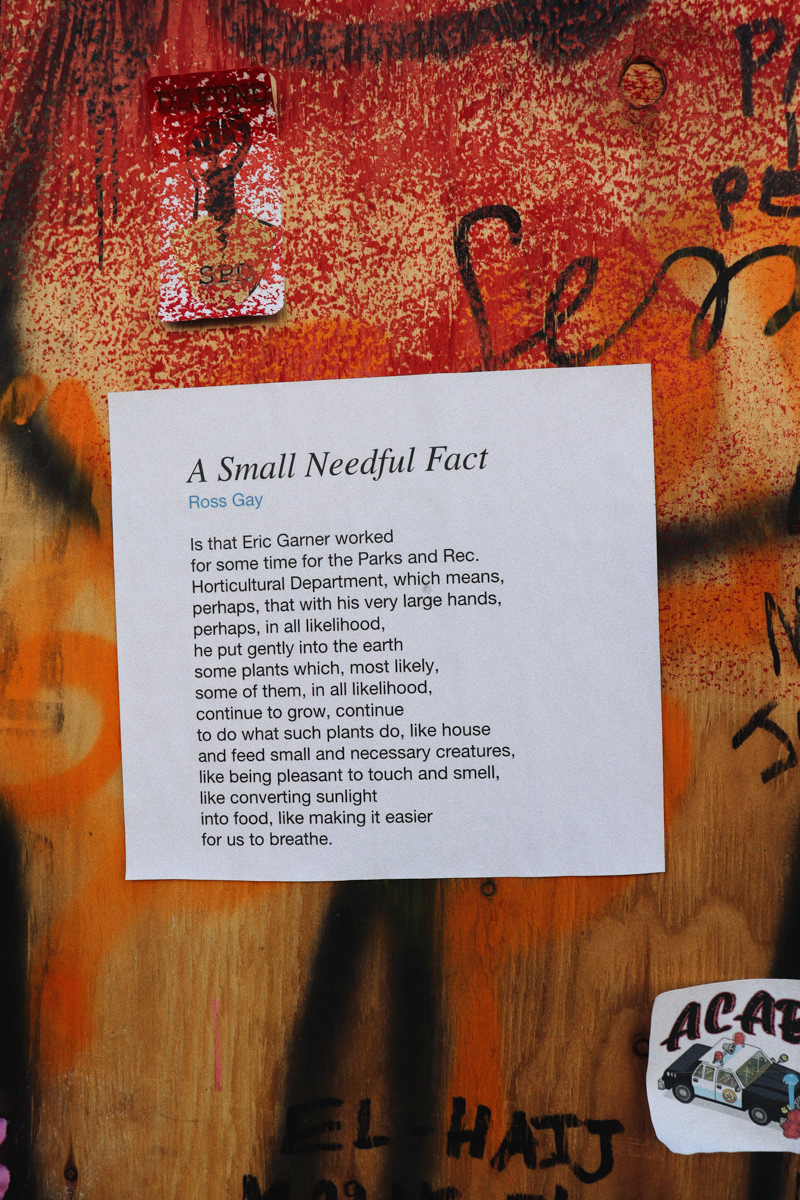 DEFUND
SPD
A Small Needful Fact
Ross Gay
Is that Eric Garner worked
for some time for the Parks and Rec.
Horticultural Department, which means,
perhaps, that with his very large hands,
perhaps, in all likelihood,
he put gently into the earth
some plants which, most likely,
some of them, in all likelihood,
continue to grow, continue
to do what such plants do, like house
and feed small and necessary creatures,
like being pleasant to touch and smell,
like converting sunlight
into food, like making it easier
for us to breathe.
ACAB
EL-HAJJ